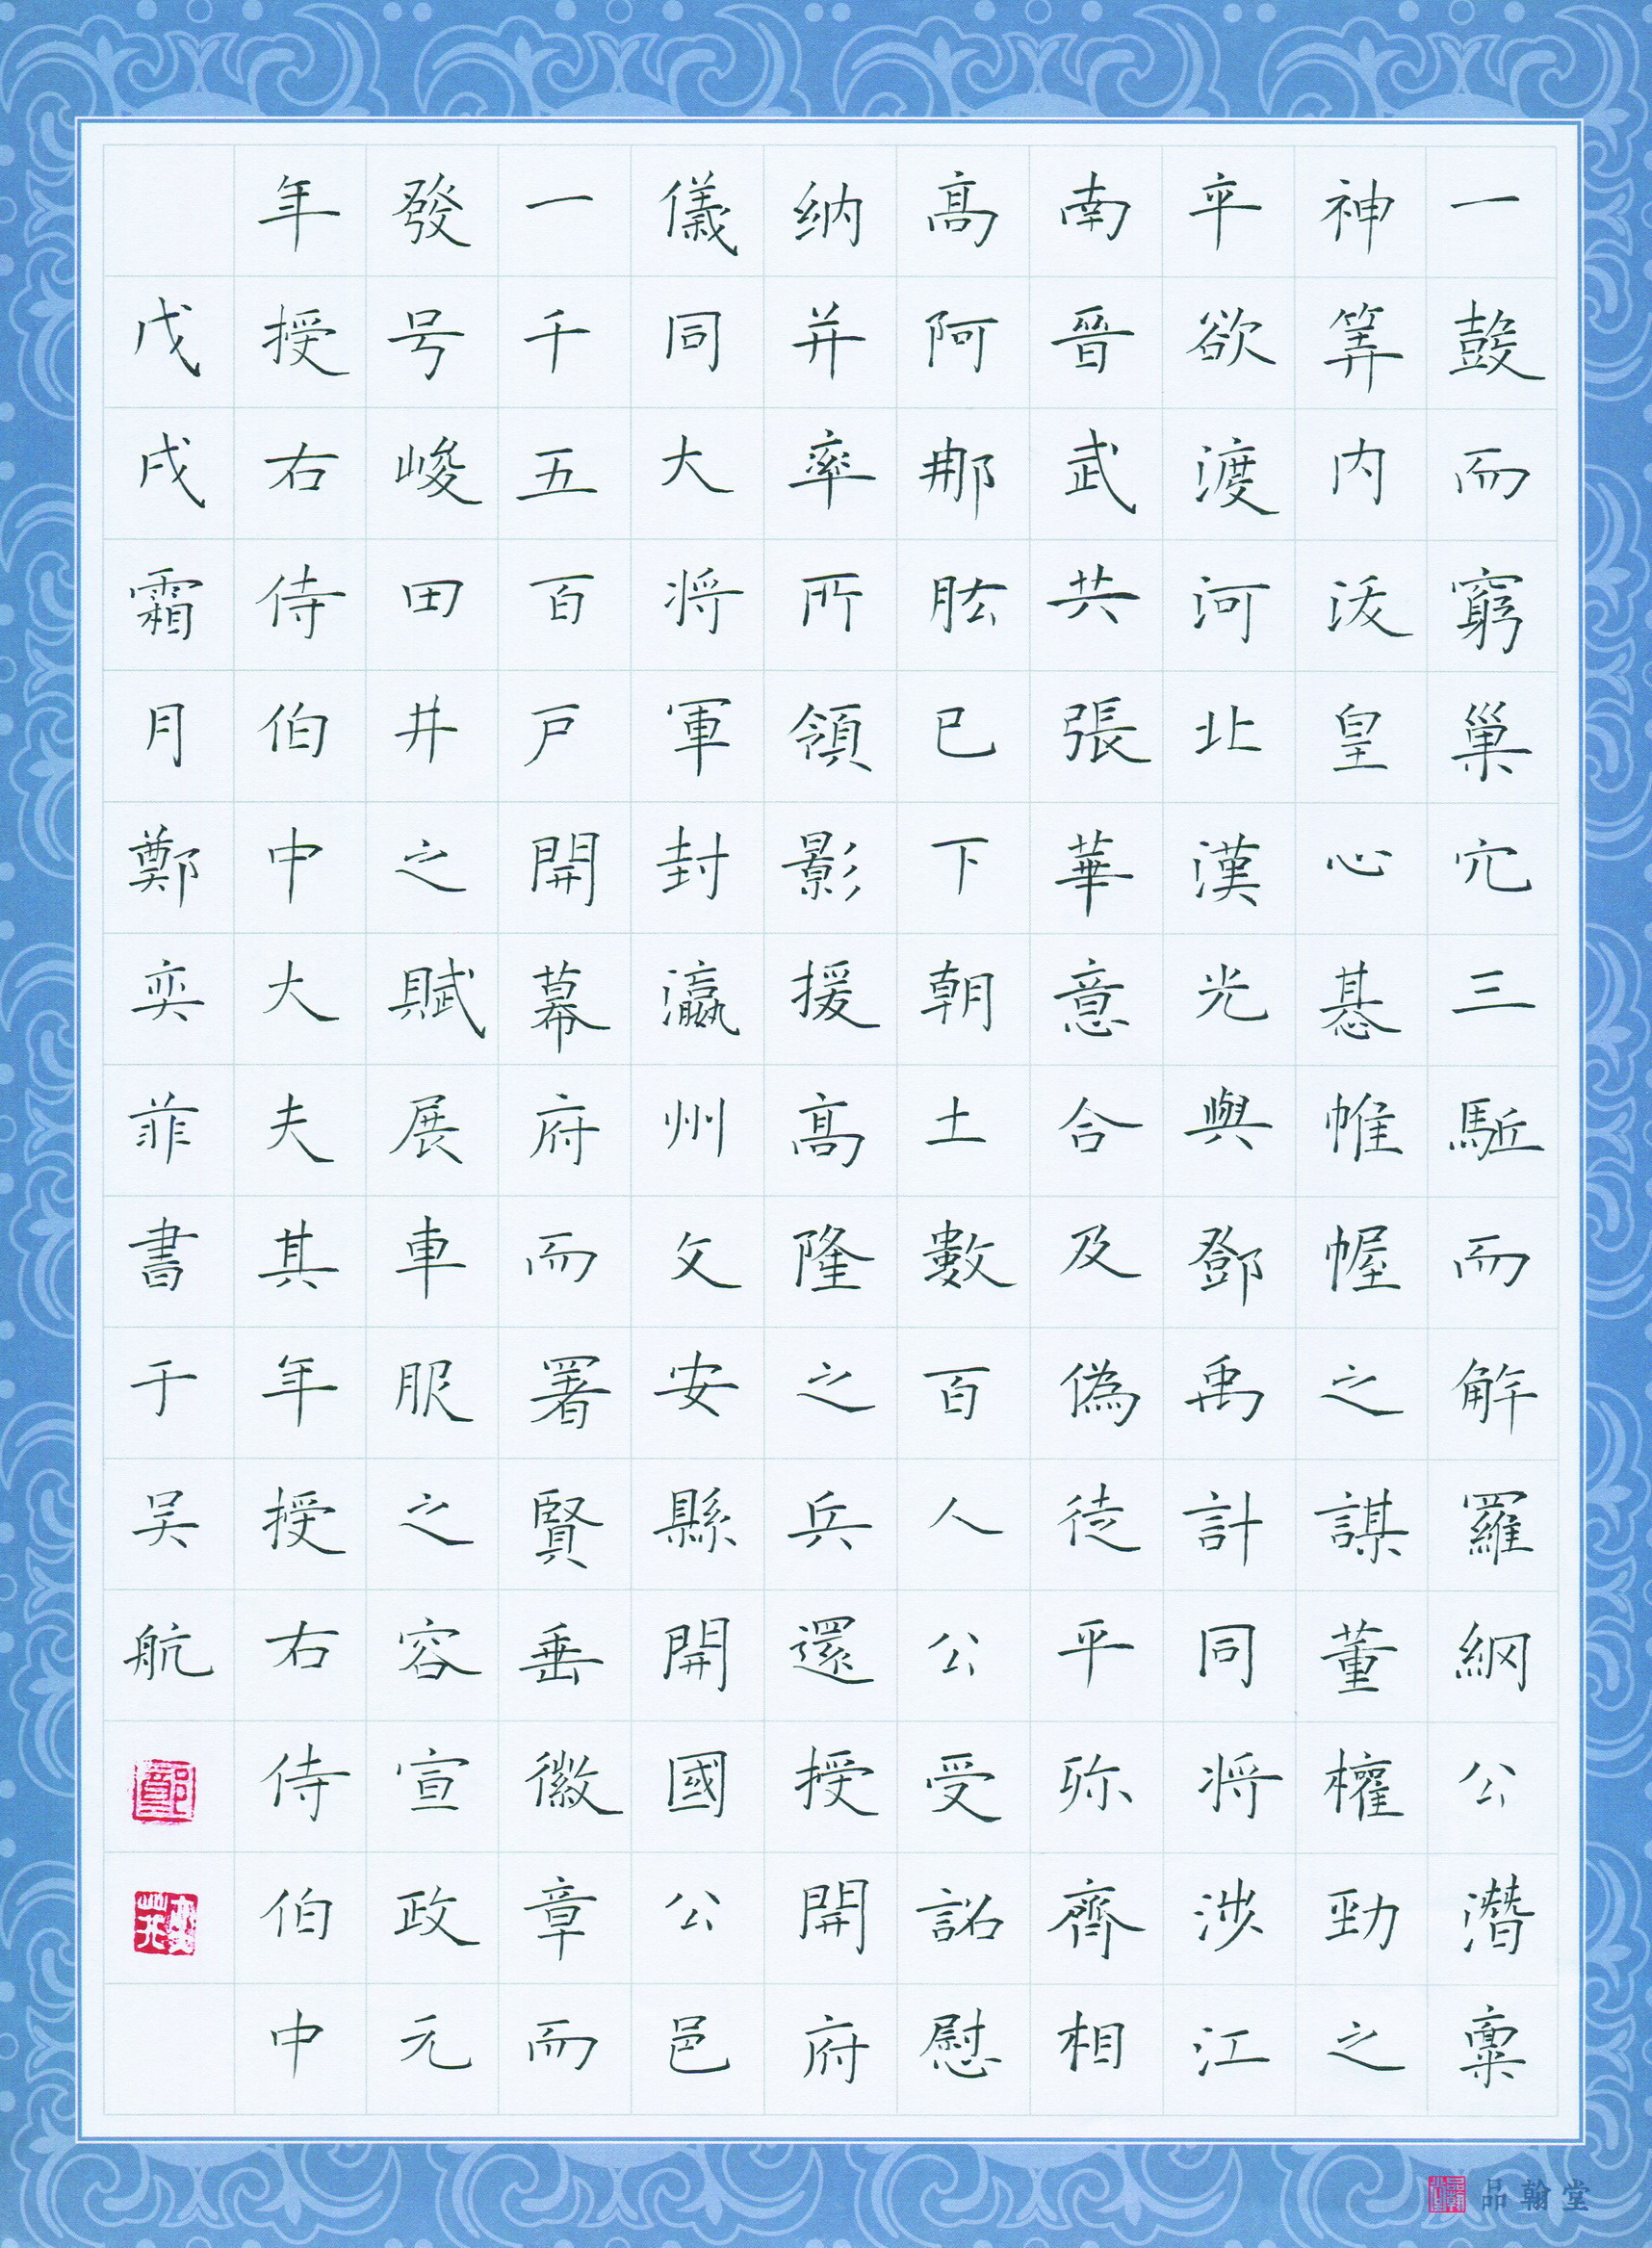 一鼓而窮巢穴三駈而解羅網公潛稟
神筭内沃皇心惎帷幄之謀董權勁之
平欲渡河北漢光與鄧禹計同将涉江
南晉武共張華意合及偽徒平殄齊相
髙阿那肱已下朝士數百人公受詔慰
纳并率所領影援髙隆之兵還授開府
儀同大将軍封瀛州文安縣開國公邑
一千五百戸開幕府而署賢垂徽章而
發号峻田井之賦展車服之容宣政元
年授右侍伯中大夫其年授右侍伯中
戊戌霜月鄭奕菲書于吴航
鄭
奕菲
品翰堂